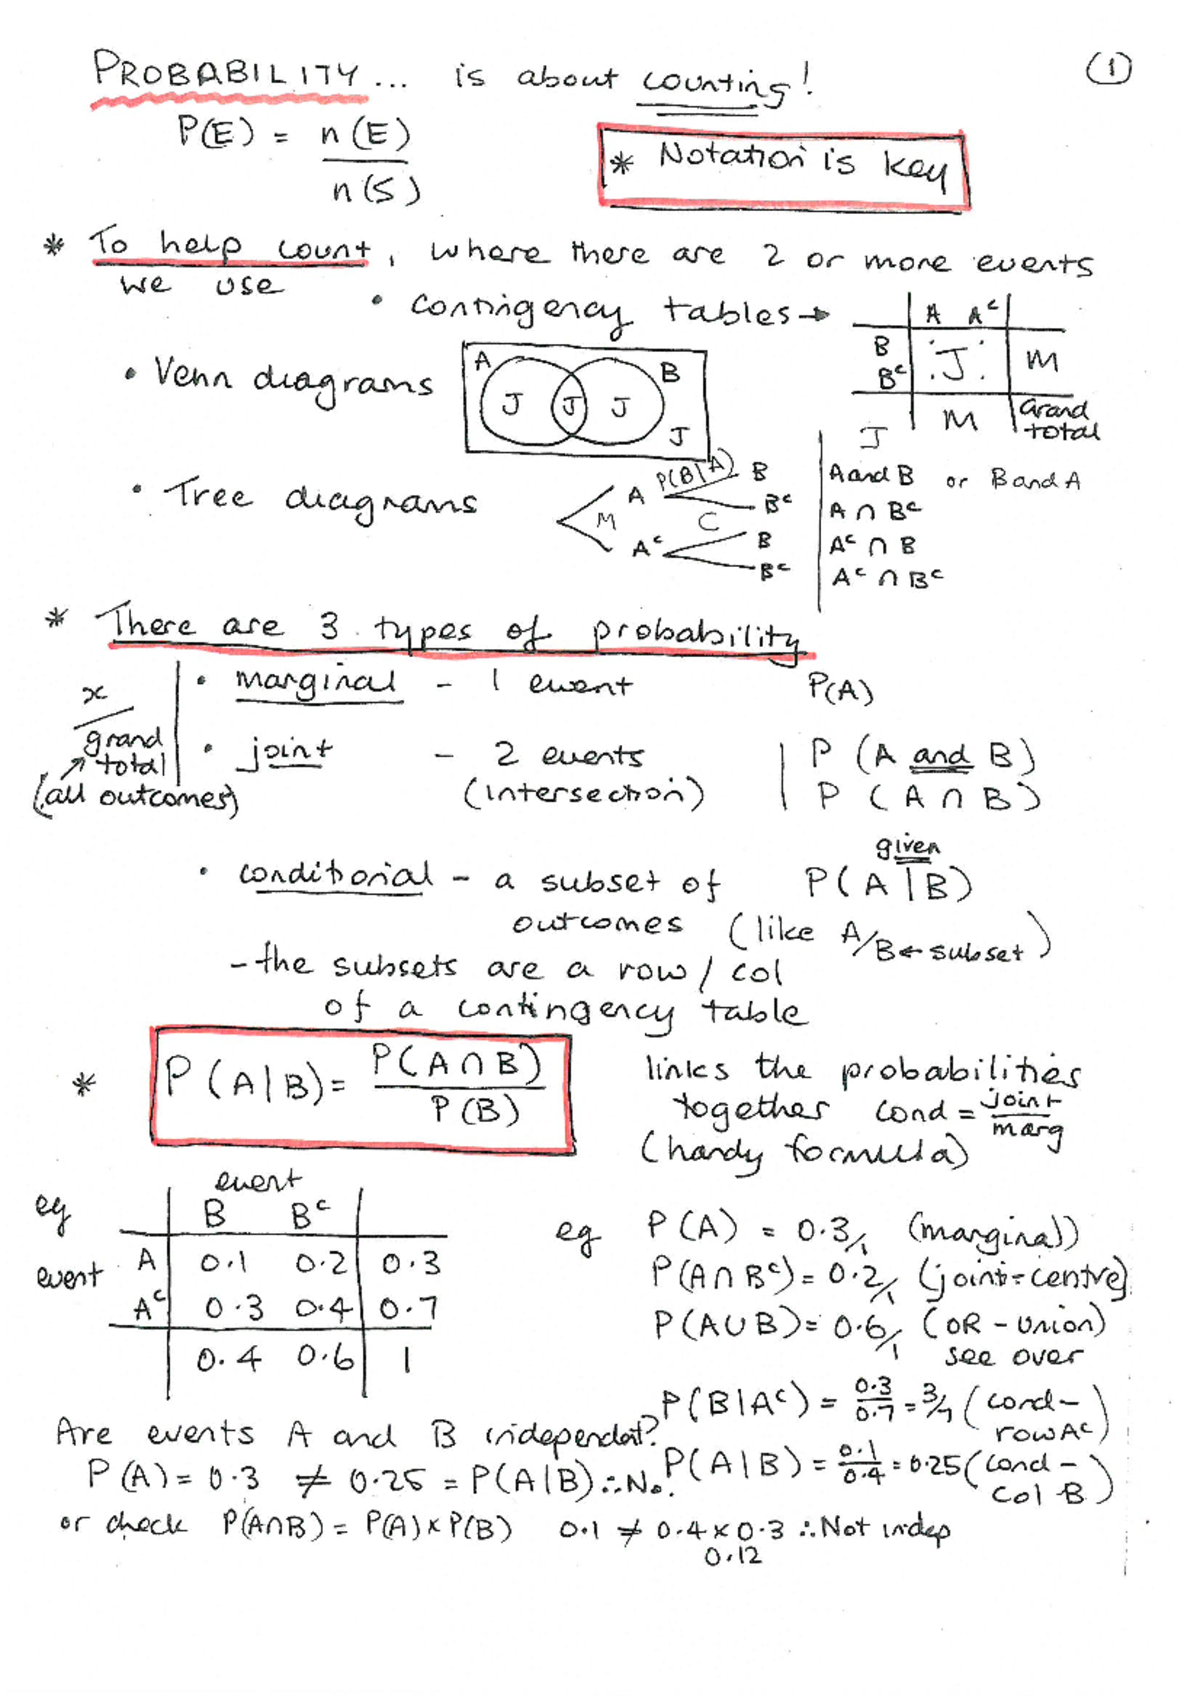 PROBABILITY... is about counting! (1)
P(E) = n(E)
n(S)
* Notation is key
* To help count, where there are 2 or more events
we use
• contingency tables →
A Aᶜ
B
Bᶜ
J
M
M
Grand
total
• Venn diagrams
A
B
J
J
J
J
• Tree diagrams
M
A
Aᶜ
P(B|A)
C
B
Bᶜ
B
Bᶜ
J
A and B or B and A
A ∩ Bᶜ
Aᶜ ∩ B
Aᶜ ∩ Bᶜ
* There are 3 types of probability
x
grand
total
(all outcomes)
• marginal - 1 event P(A)
• joint - 2 events P (A and B)
(intersection) P (A ∩ B)
given
• conditional - a subset of P(A|B)
outcomes (like A/B ← subset)
- the subsets are a row / col
of a contingency table
* P(A|B) = P(A∩B)
P(B)
links the probabilities
together cond = joint
marg
(handy formula)
eg
event
B Bᶜ
event
A 0.1 0.2 0.3
Aᶜ 0.3 0.4 0.7
0.4 0.6 1
eg P(A) = 0.3/1 (marginal)
P(A∩Bᶜ) = 0.2/1 (joint=centre)
P(A∪B) = 0.6/1 (OR - union)
see over
P(B|Aᶜ) = 0.3/0.7 = 3/7 (cond-
row Aᶜ)
P(A|B) = 0.1/0.4 = 0.25 (cond-
col B)
Are events A and B independent?
P(A) = 0.3 ≠ 0.25 = P(A|B) ∴ No.
or check P(A∩B) = P(A)×P(B) 0.1 ≠ 0.4×0.3 ∴ Not indep
0.12